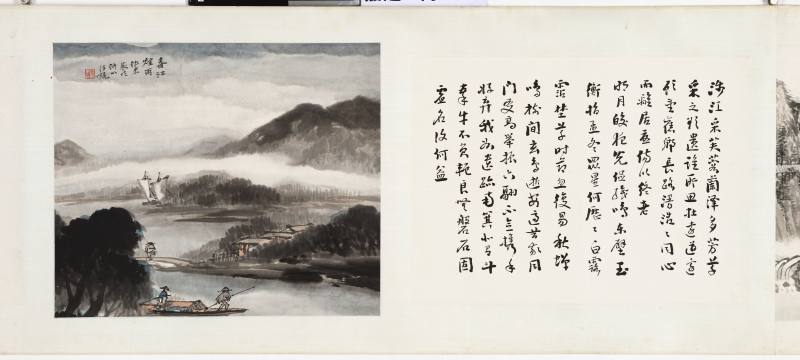 涉江采芙蓉蘭澤多芳草
采之欲遺誰所思在遠道還
顧望舊鄉長路漫浩〻同心
而離居憂傷以終老
明月皎夜光促織鳴東壁玉
衡指孟冬眾星何歷〻白露
霑野草時節忽復易秋蟬
鳴樹間玄鳥逝安適昔我同
門友高舉振六翮不念攜手
好棄我如遺跡南箕北有斗
牽牛不負軛良無盤石固
虛名復何益
春江
煙雨